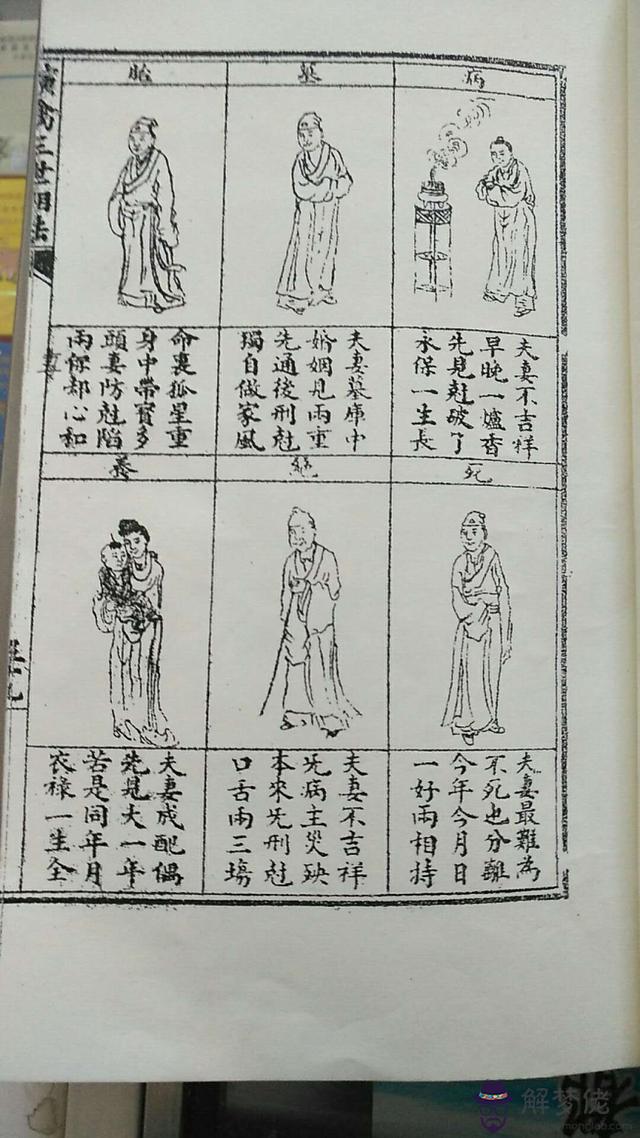 演禽三世相法
病
夫妻不吉祥
早晚一爐香
先見尅破了
永保一生長
墓
夫妻墓庫中
婚姻見兩重
先通後刑尅
獨自做家風
胎
命裏孤星重
身中帶寶多
頭妻防尅陷
兩保却心和
死
夫妻最難為
不死也分離
今年今月日
一好兩相持
絕
夫妻不吉祥
先病主災殃
本來先刑尅
口舌兩三塲
養
夫妻成配偶
先見大一年
若是同年月
衣祿一生全
解梦佬